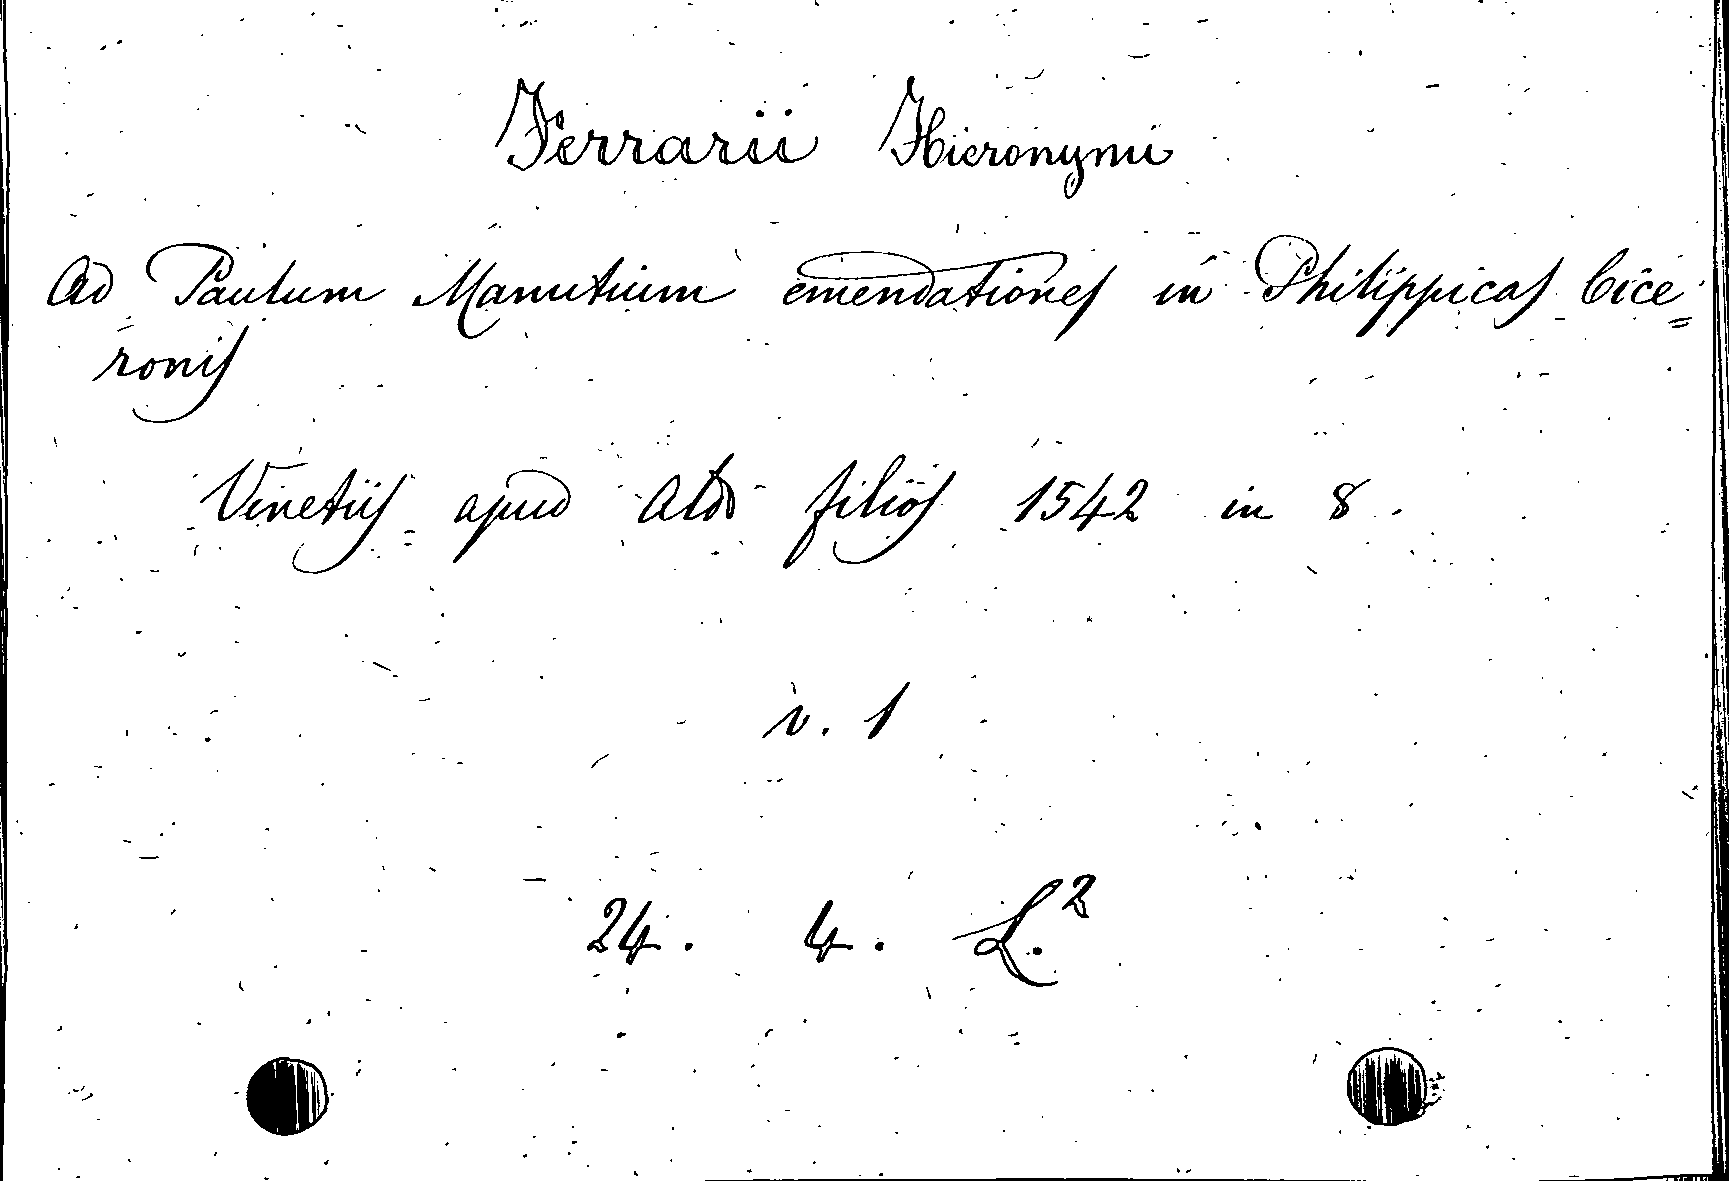 Ferrarii Hieronymi
Ad Paulum Manutium emendationes in Philippicas Cice=
ronis
Venetiis apud Aldi filios 1542 in 8.
v. 1
24. 4. L.2